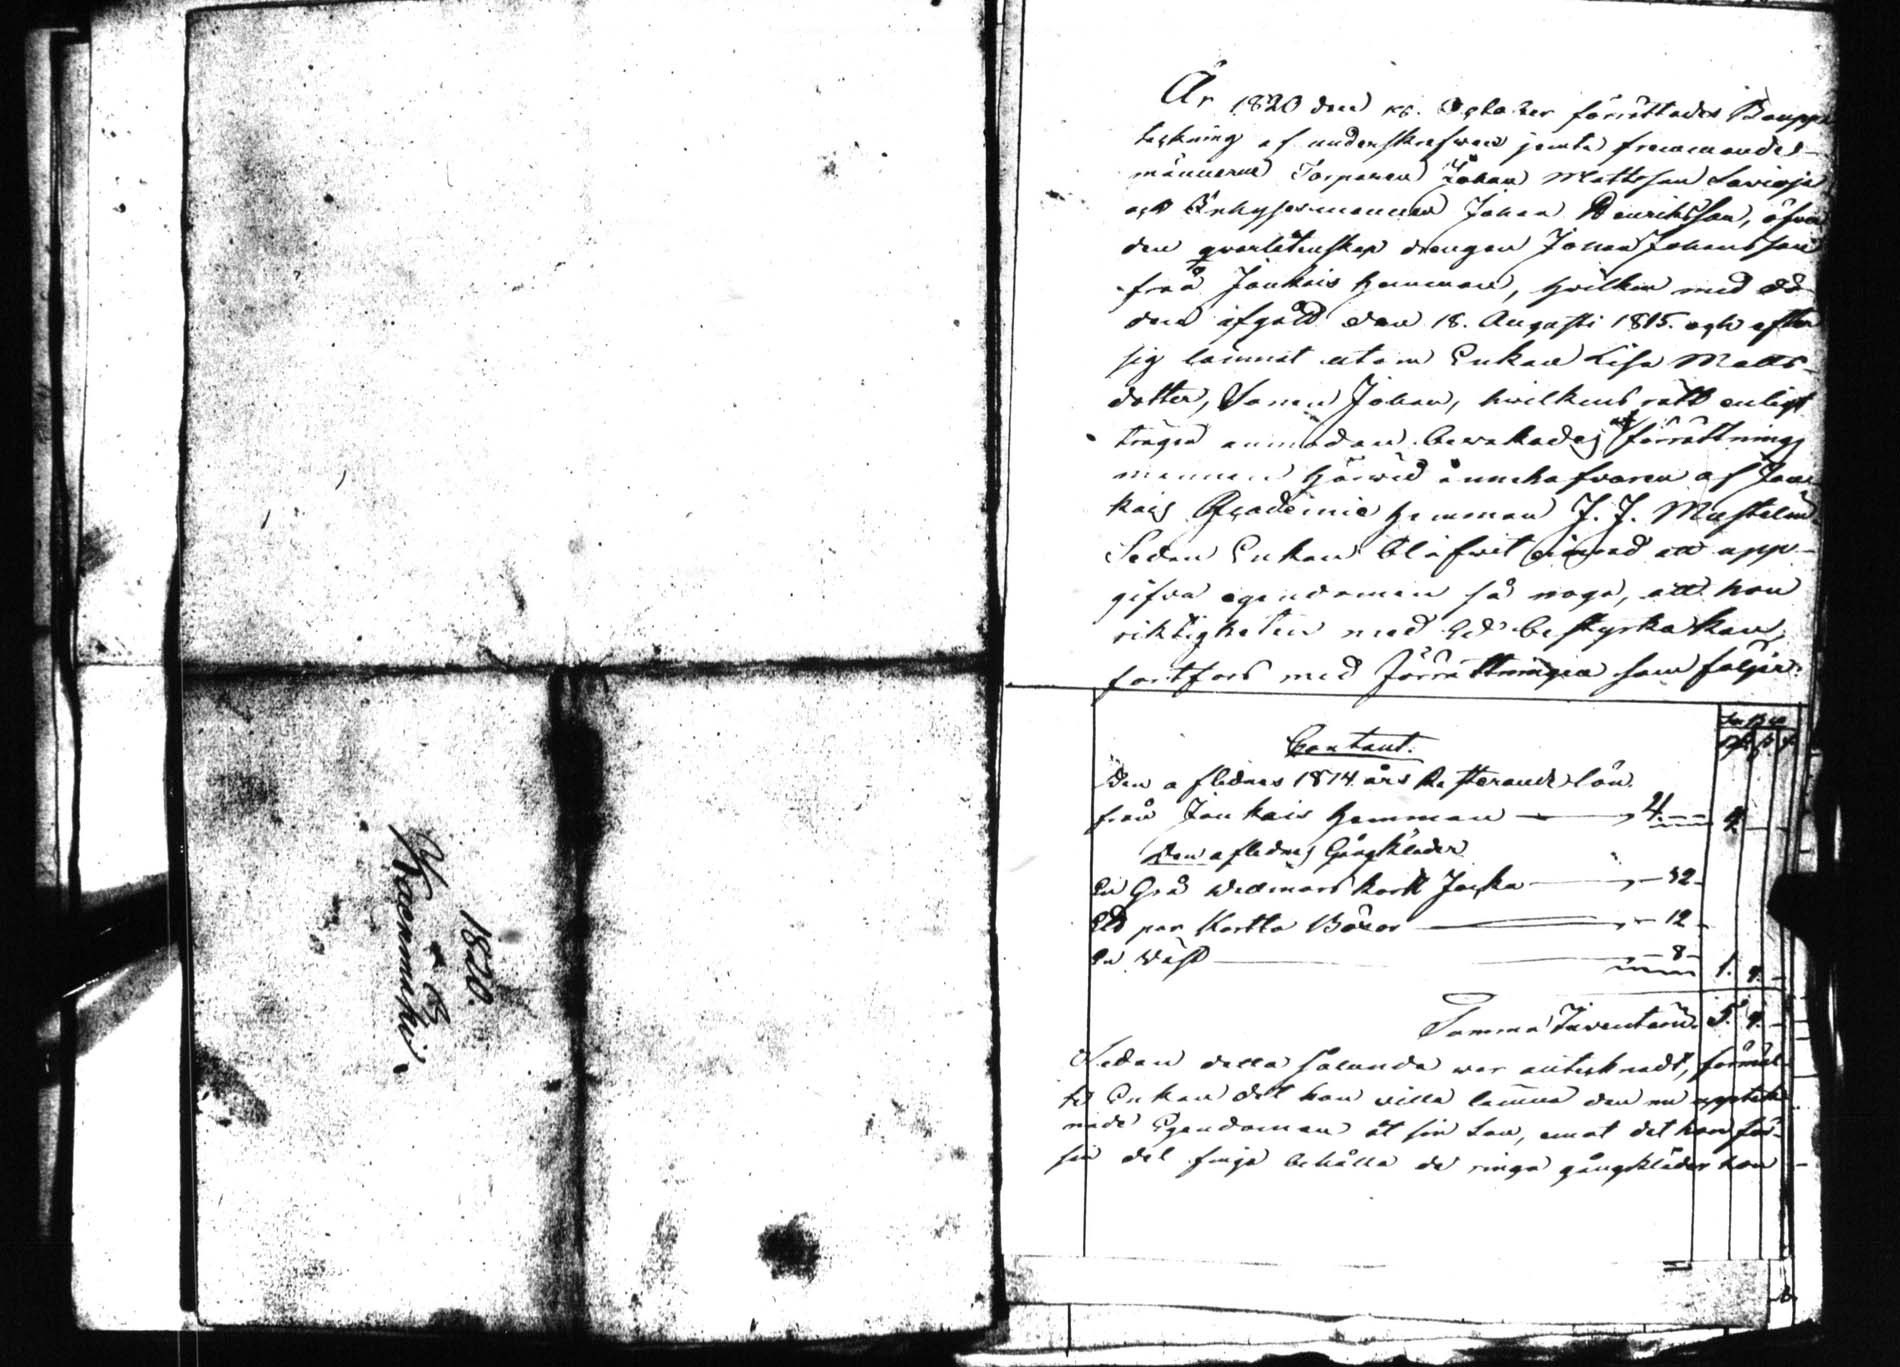 1820.
År 1820 den 16. October förrättades Boupp-
tekning af underskrefwen jemte fremmande
männerne Torparen Johan Mattsson Savioja
och Inhysesmannen Johan Henriksson, öfver
den qvarlåtenskap drengen Johan Johansson
från Jonkais hemman, hvilken med dö-
den afgått den 18. Augusti 1815. och efter
sig lämnat utom Enkan Lisa Matts-
dotter, Sonen Johan, hvilkens rätt enligt
trägen anmodan bewakades förrättnings
mannen härwid innehafvaren af Jon-
kais Academie hemman J. J. Mustelin.
Sedan Enkan blifvit att upp-
gifva egendomen så noga, att hon
riktigheten med Ed bestyrka kan,
fortfors med förrättningen som följer.
Contant.
Den aflednes 1814 års Resterande lön
från Jonkais hemman 4. 4.
Den aflednes Gångkläder
En Grå wadmars kort Jacka 32
Ett par kortta Böxor 12
En Wäst 8 1. 4.
Summa Inventarii 5. 4.
Sedan detta sålunda war antecknadt, förmäl-
te Enkan det hon ville lämna den nu uppteck-
nade Egendomen åt sin Son, emot det hon för
sin del finge behålla de ringa gångkläder hon